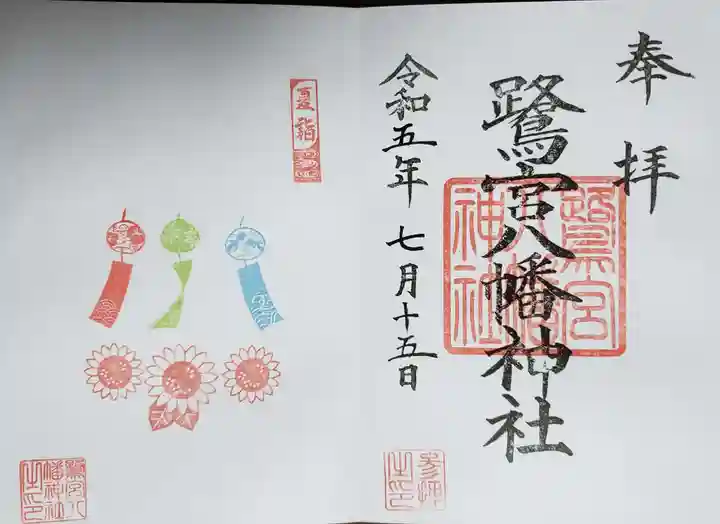 奉拝
鷺宮八幡神社
令和五年 七月十五日
鷺宮八幡神社
参拝之印
夏詣
鷺宮八幡神社之印